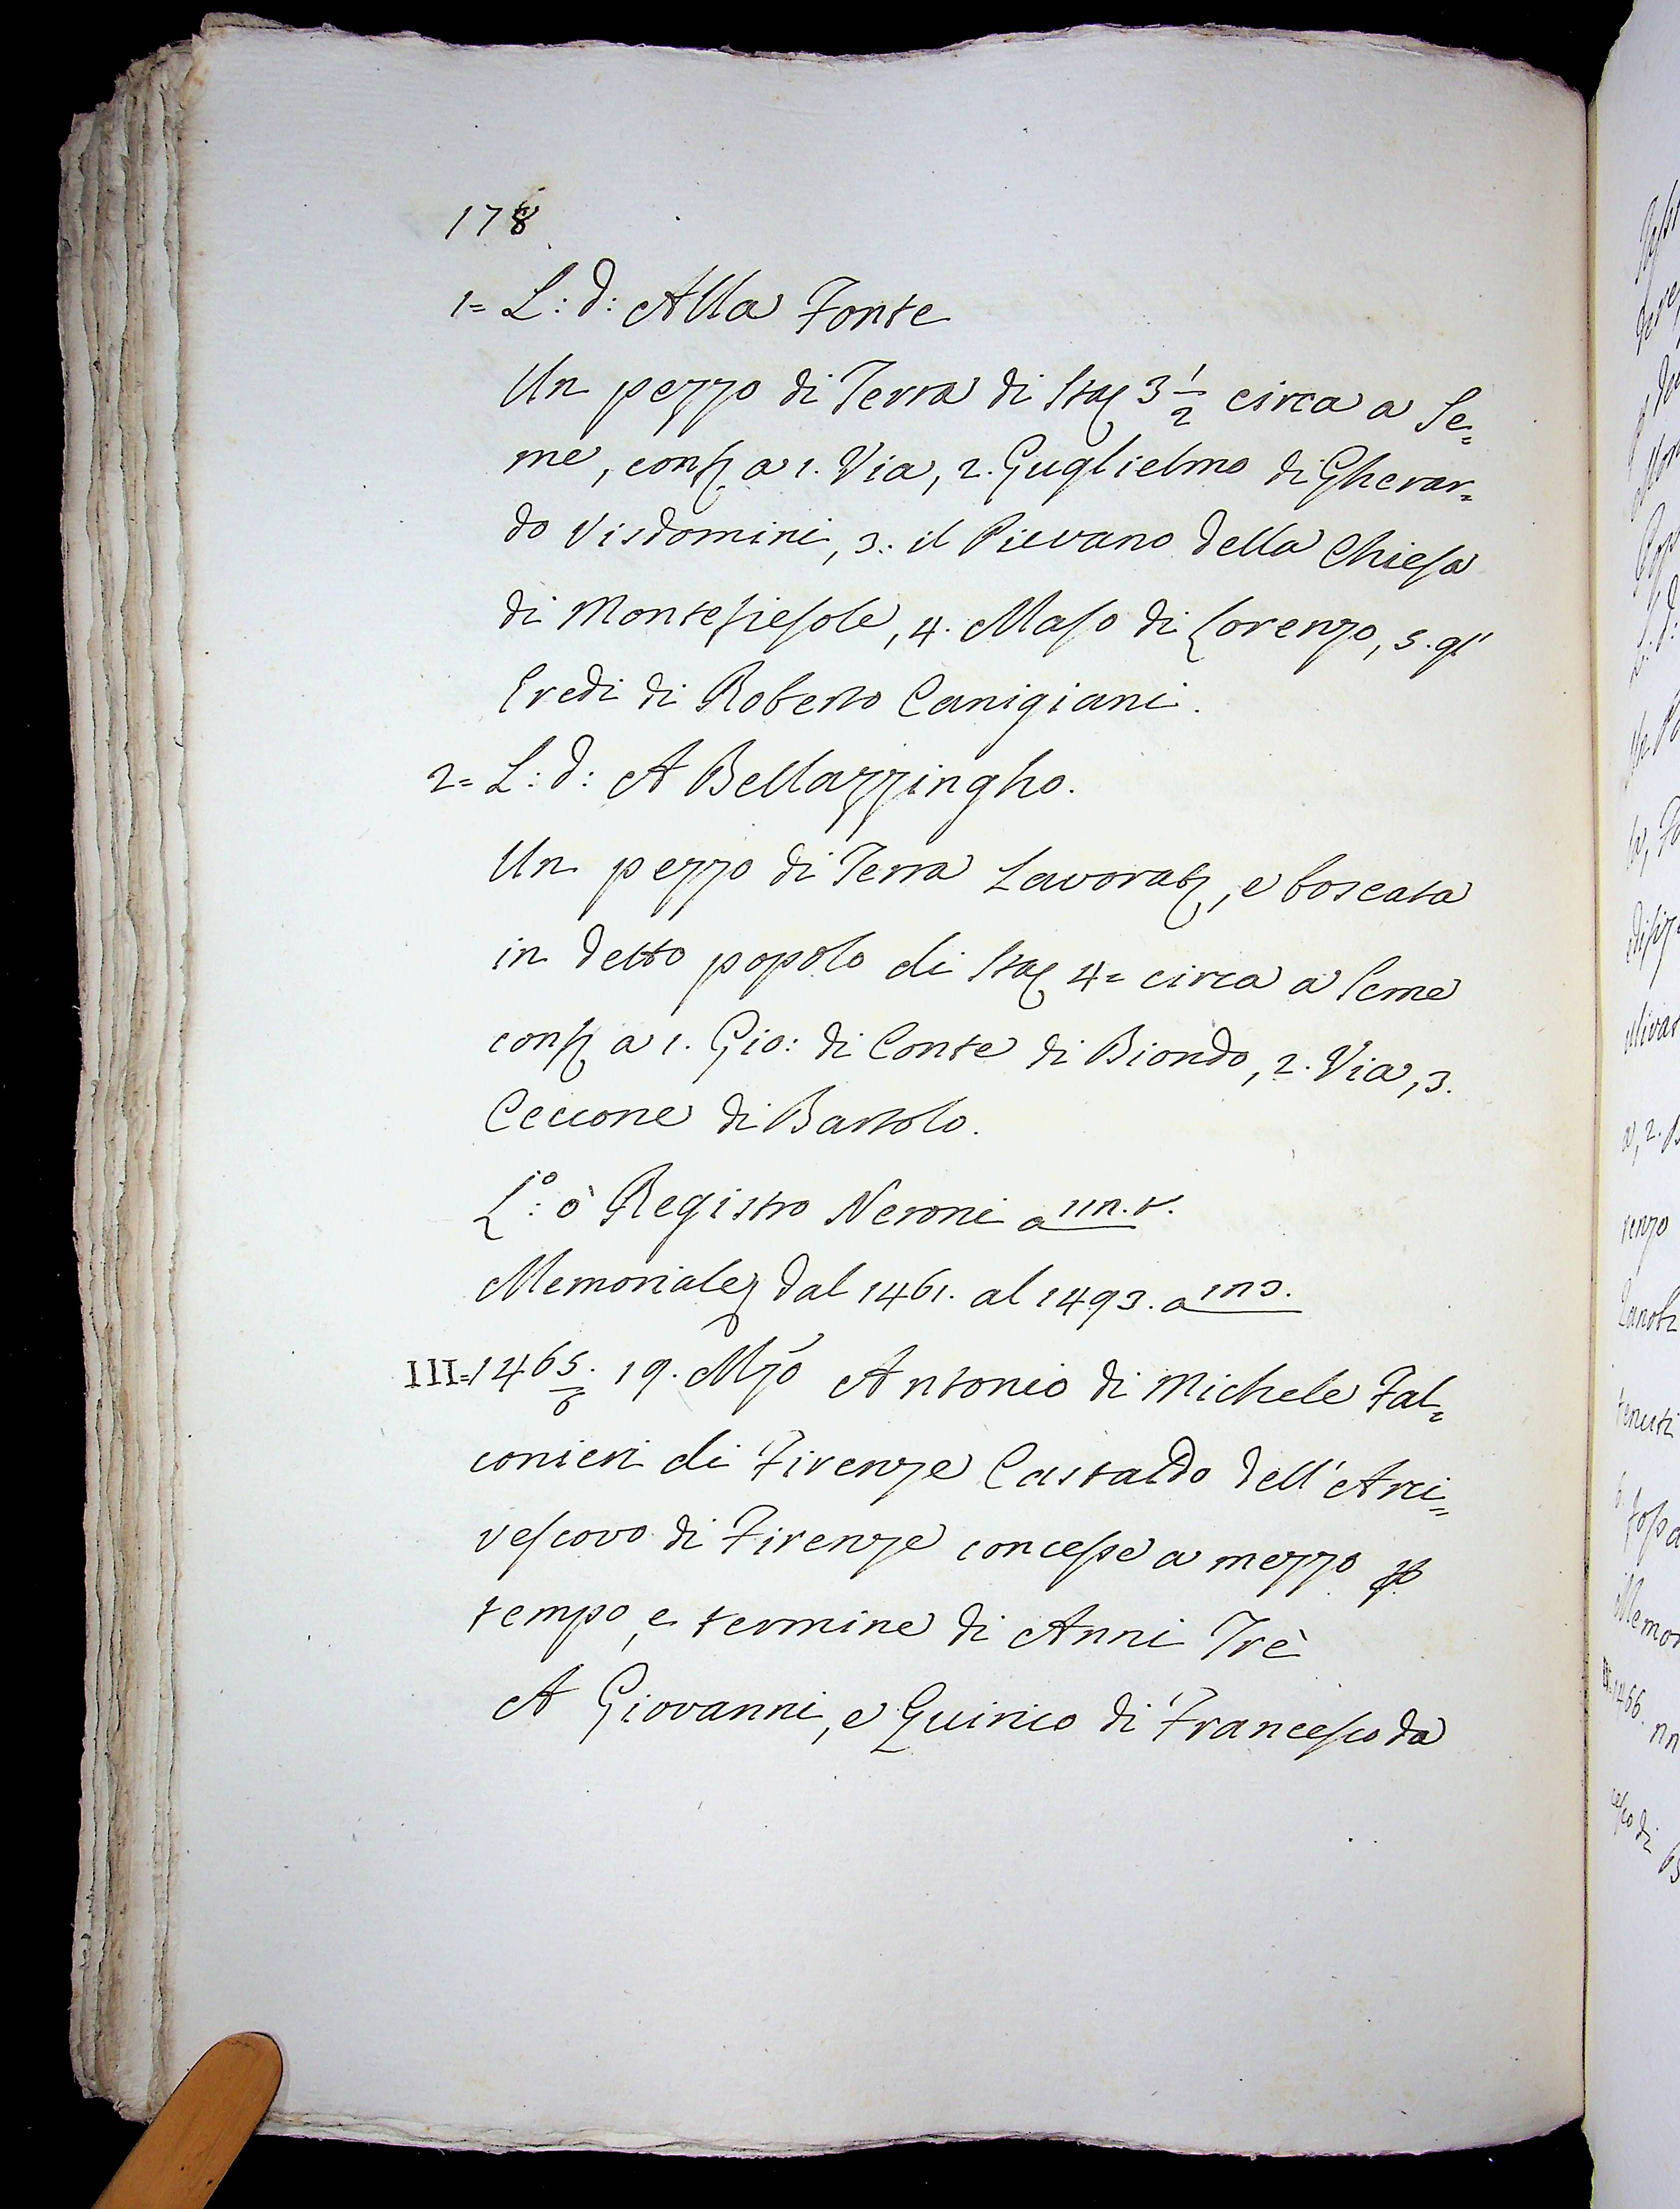 178
1= L: d: Alla Fonte
Un pezzo di Terra di Staᶜ 3 1/2 circa a Se=
me, conf. a 1. Via, 2. Guglielmo di Gherar=
do Visdomini, 3. il Pievano della Chiesa
di Montefiesole, 4. Maso di Lorenzo, 5. gl'
Eredi di Roberto Canigiani.
2= L: d: A Bellazzingho.
Un pezzo di Terra Lavorat, e boscata
in detto popolo di Staᶜ 4= circa a Seme
conf. a 1. Gio: di Conte di Biondo, 2. Via, 3.
Ceccone di Bartolo.
L.º: ò Registro Neroni a
Memoriale dal 1461. al 1493. a
III= 1465. 19. Mzo Antonio di Michele Fal=
conieri di Firenze Castaldo dell' Arci=
vescovo di Firenze concesse a mezzo p
tempo, e termine di Anni Trè
A Giovanni, e Quirico di Francesco da